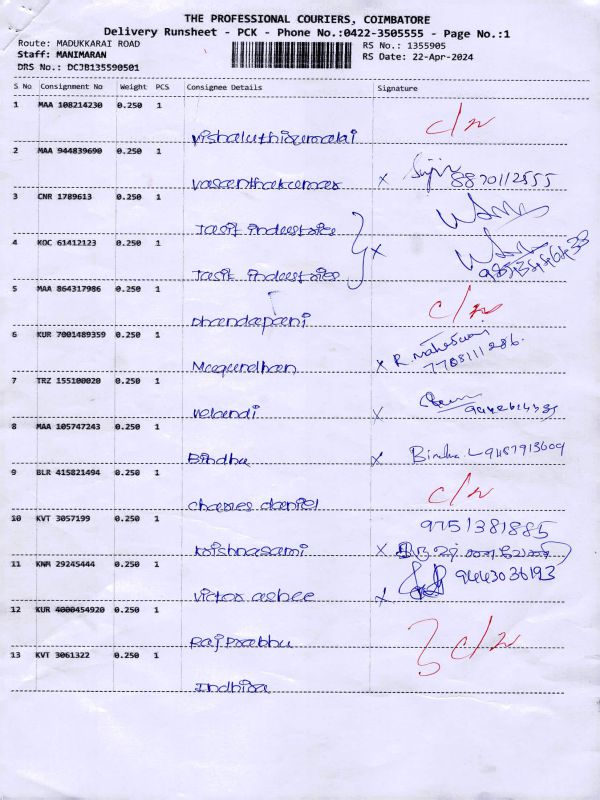 THE PROFESSIONAL COURIERS, COIMBATORE
Delivery Runsheet - PCK - Phone No.:0422-3505555 - Page No.:1
Route: MADUKKARAI ROAD RS No.: 1355905
Staff: MANIMARAN RS Date: 22-Apr-2024
DRS No.: DCJB135590501
S No Consignment No Weight PCS Consignee Details Signature
1 MAA 108214230 0.250 1
c/n
2 MAA 944839690 0.250 1
vasanthakumar x 8870112555
3 CNR 1789613 0.250 1
Jasit Industries
4 KOC 61412123 0.250 1
Jasit Industries x
5 MAA 864317986 0.250 1
Dhandapani c/n
6 KUR 7001489359 0.250 1
x R. Maheswari
7708111286.
7 TRZ 155100020 0.250 1
velandi x
8 MAA 105747243 0.250 1
Bindhu x Bindhu. L 9487913609
9 BLR 415821494 0.250 1
charles daniel c/n
10 KVT 3057199 0.250 1
9751381885
krishnasami x
11 KNM 29245444 0.250 1
9443036193
victor x
12 KUR 4000454920 0.250 1
Raj Prabhu c/n
13 KVT 3061322 0.250 1
Indhira